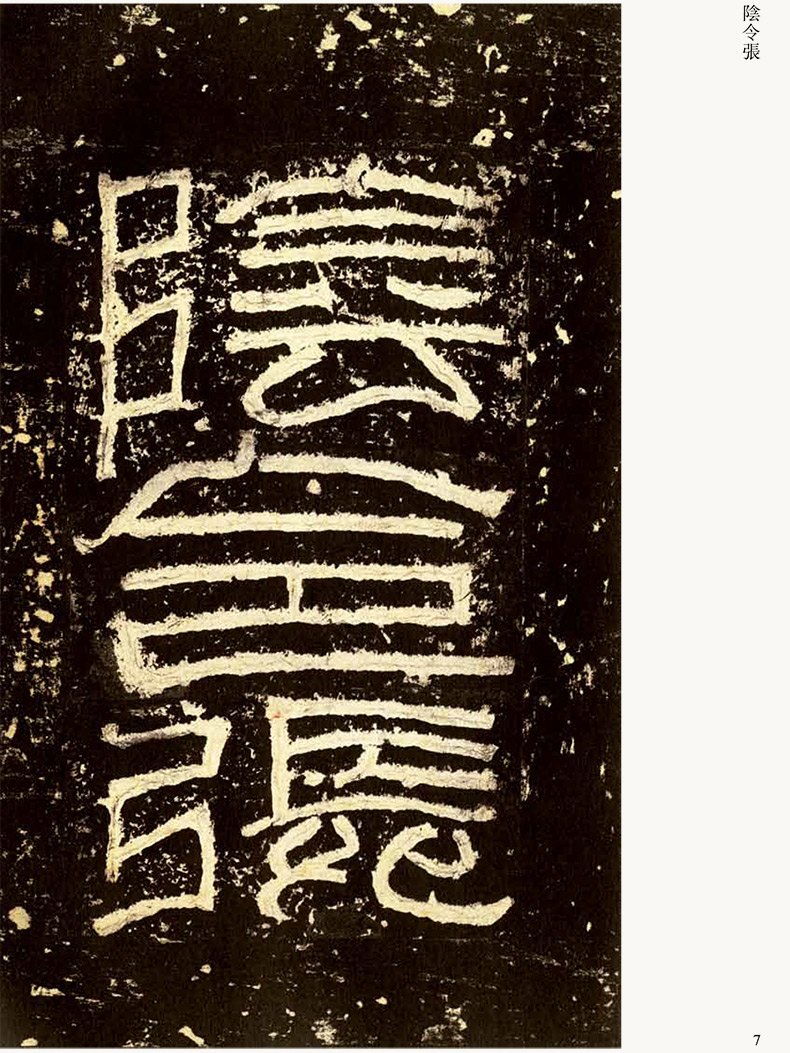 陰令張
陰令張
7